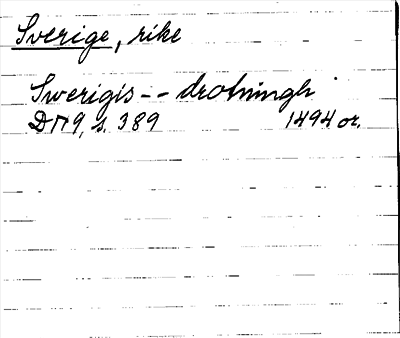 Sverige, rike
Swerigis -- drotningh
DN 9, s. 389 1494 or.